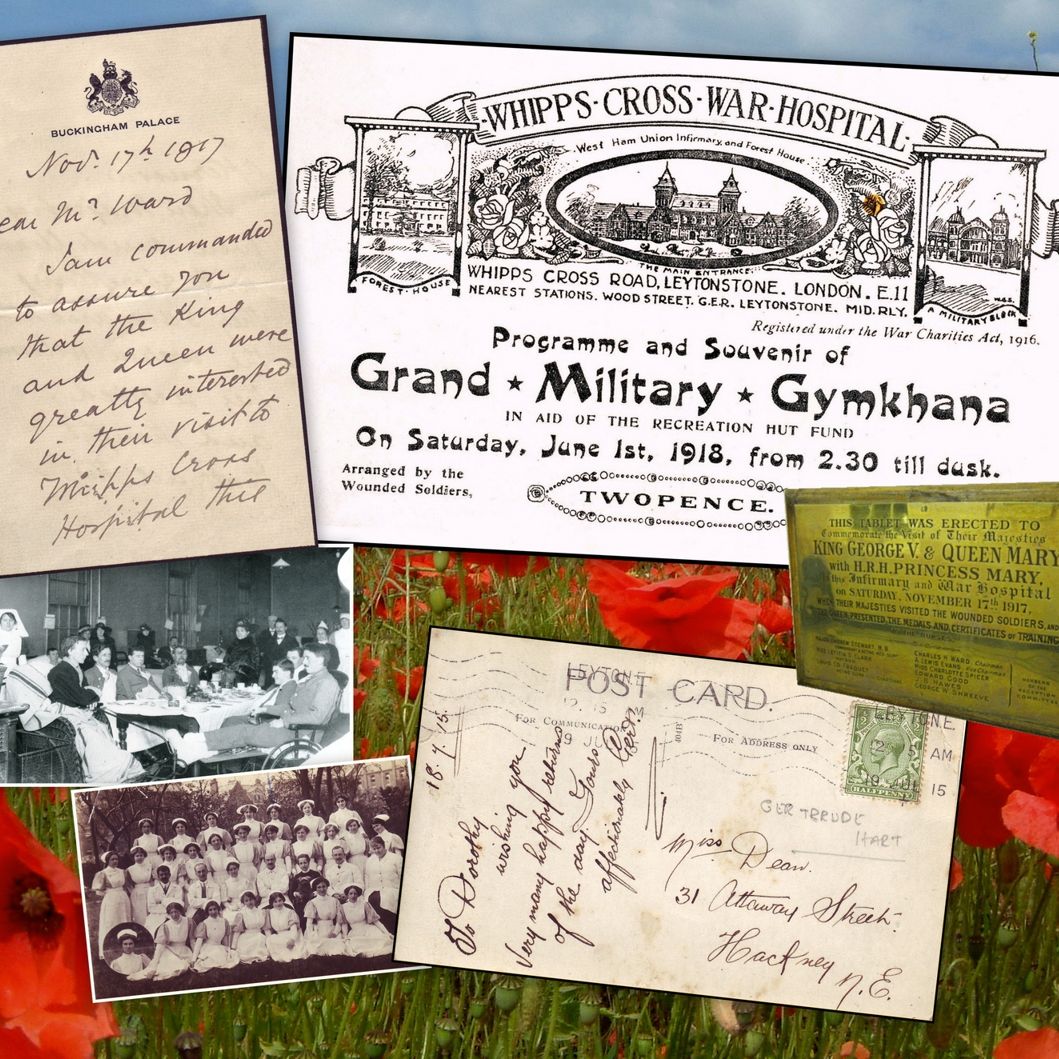 BUCKINGHAM PALACE
Nov. 17th 1917
ear Mr. Ward
I am commanded
to assure you
that the King
and Queen were
greatly interested
in their visit to
Whipps Cross
Hospital this
WHIPPS·CROSS·WAR·HOSPITAL·
West Ham Union Infirmary, and Forest House
FOREST·HOUSE
THE MAIN ENTRANCE
A MILITARY BLOCK
WHIPPS CROSS ROAD, LEYTONSTONE. LONDON. E.11
NEAREST STATIONS. WOOD STREET. G.E.R. LEYTONSTONE. MID. RLY.
Registered under the War Charities Act, 1916.
Programme and Souvenir of
Grand ★ Military ★ Gymkhana
IN AID OF THE RECREATION HUT FUND
On Saturday, June 1st, 1918, from 2.30 till dusk.
Arranged by the
Wounded Soldiers,
TWOPENCE.
THIS TABLET WAS ERECTED TO
Commemorate the Visit of Their Majesties
KING GEORGE V. & QUEEN MARY
with H.R.H. PRINCESS MARY.
to this Infirmary and War Hospital
on SATURDAY, NOVEMBER 17TH 1917,
WHEN THEIR MAJESTIES VISITED THE WOUNDED SOLDIERS, AND
THE QUEEN PRESENTED THE MEDALS AND CERTIFICATES OF TRAINING
CHARLES H. WARD, CHAIRMAN
A. LEWIS EVANS
MISS CHARLOTTE SPICER
EDWARD GOOD
J.B. HAWES
GEORGE W. SHREEVE
MEMBERS
OF THE
COMMITTEE
POST CARD.
FOR ADDRESS ONLY
18.7.15
To Dorothy
wishing you
Very many happy returns
of the day. Yours
affectionately Gert.
LEYTONE
12.15 AM
19 JUL 15
HALFPENNY
GERTRUDE
HART
Miss Dean.
31 Attaway Street.
Hackney
N.E.